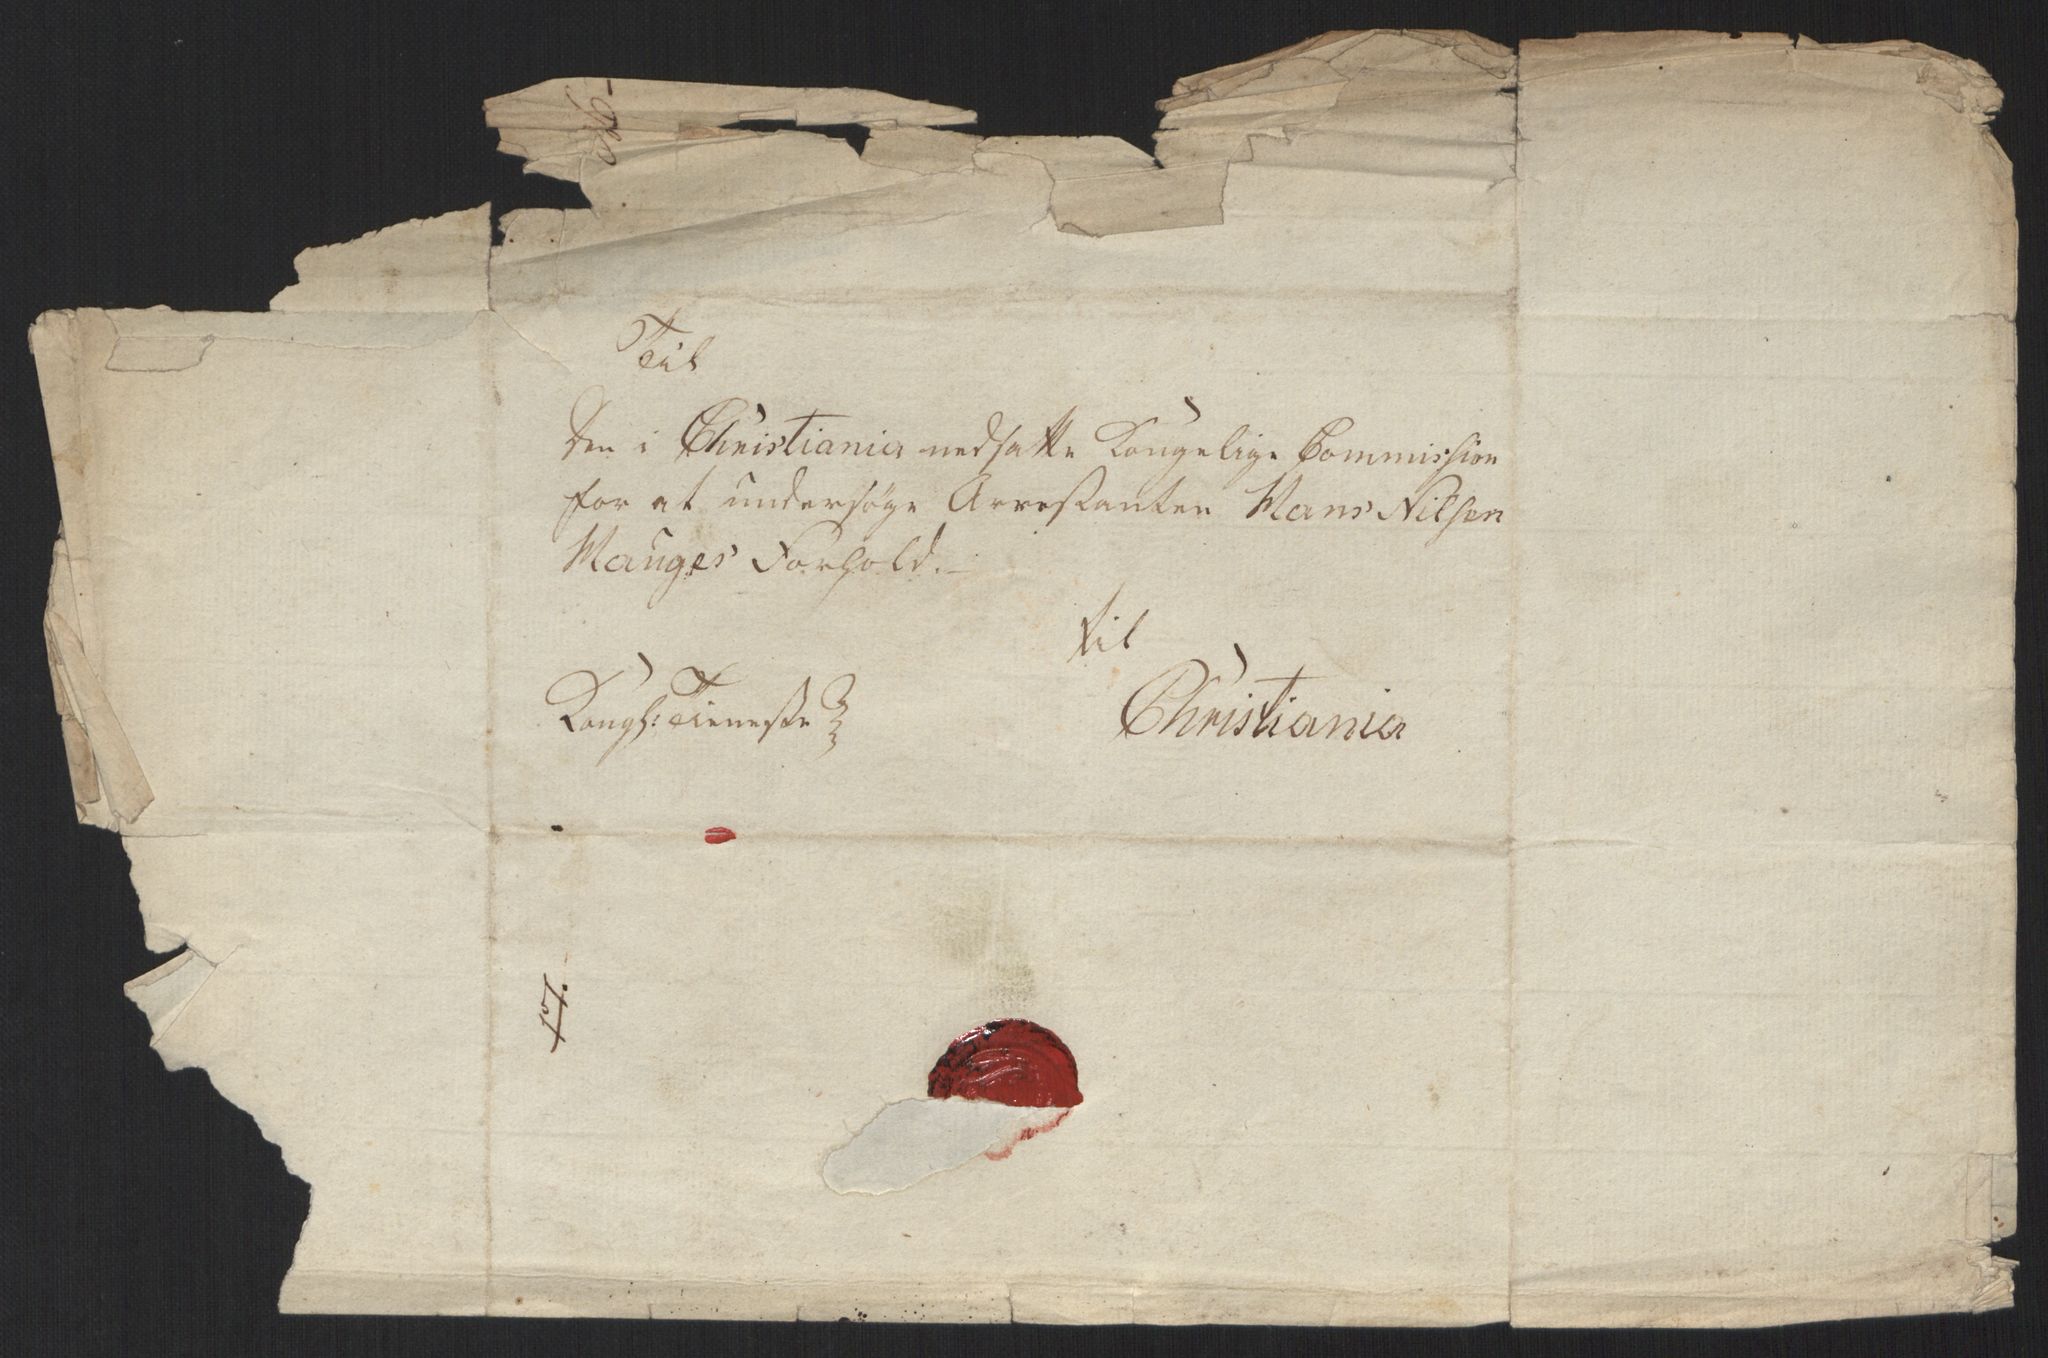 Til
Den i Christiania nedsatte Kongelige Commission
for at undersøge Arrestanten Hans Nilsen
Hauges Forhold. –
til
Kongl: Tieneste
Christiania
17.